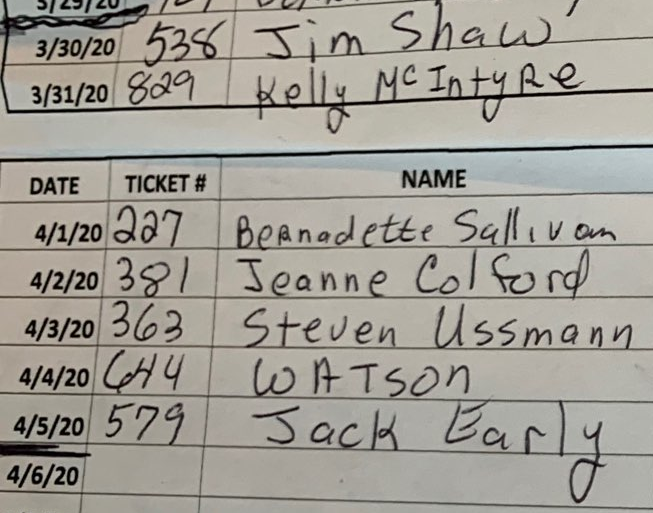 3/29/20
3/30/20 538 Jim Shaw
3/31/20 829 Kelly McIntyRe
DATE TICKET # NAME
4/1/20 227 Bernadette Sullivan
4/2/20 381 Jeanne Colford
4/3/20 363 Steven Ussmann
4/4/20 644 WATSon
4/5/20 579 Jack Early
4/6/20